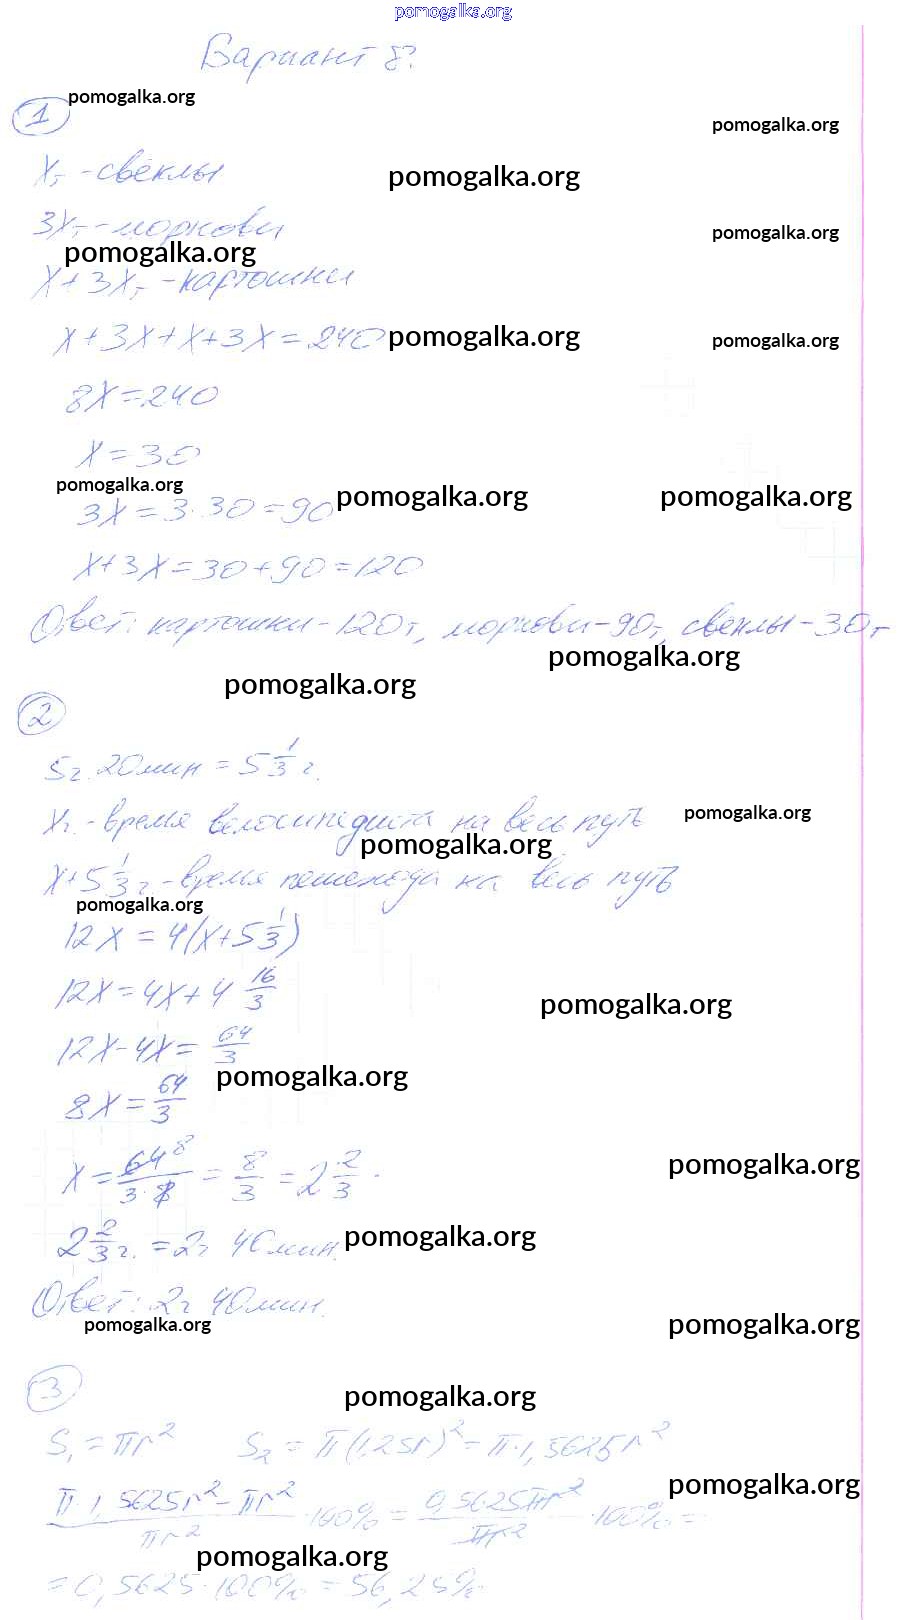 pomogalka.org
Вариант 8.
pomogalka.org
1
pomogalka.org
Xт - свёклы
pomogalka.org
3Xт - моркови
pomogalka.org
pomogalka.org
X+3Xт - картошки
X+3X+X+3X=240
pomogalka.org
pomogalka.org
8X=240
X=30
pomogalka.org
pomogalka.org
pomogalka.org
3X=3·30=90
X+3X=30+90=120
Ответ: картошки-120т, моркови-90т, свеклы-30т
pomogalka.org
pomogalka.org
2
5ч. 20мин = 5 1/3 ч.
Xч. - время велосипедиста на весь путь
pomogalka.org
pomogalka.org
X+5 1/3 ч. - время пешехода на весь путь
pomogalka.org
12X = 4(X+5 1/3)
12X=4X+4 16/3
pomogalka.org
12X-4X= 64/3
pomogalka.org
8X= 64/3
X= 64 8/3·8 = 8/3 = 2 2/3.
pomogalka.org
2 2/3 ч. = 2ч 40мин.
pomogalka.org
Ответ: 2ч 40мин.
pomogalka.org
pomogalka.org
3
pomogalka.org
S₁ = πr² S₂ = π(1,25r)² = π·1,5625r²
pomogalka.org
π·1,5625r² - πr²/πr² ·100% = 0,5625πr²/πr² ·100% =
pomogalka.org
= 0,5625·100% = 56,25%